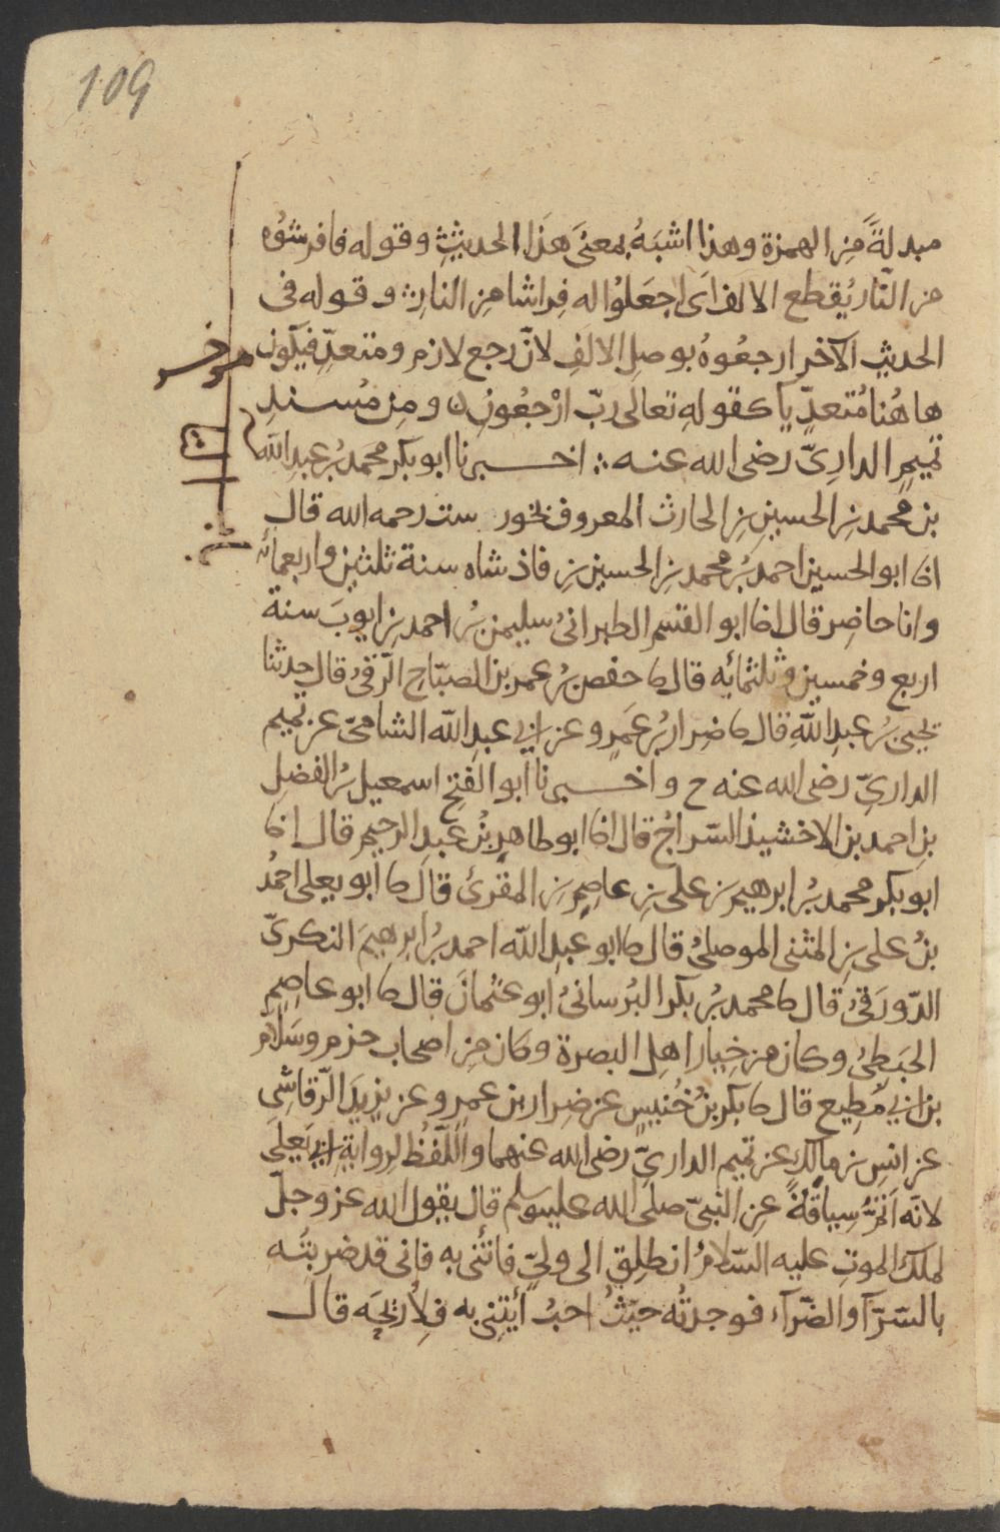 109
مبدلةً مِن الهمزة وهذا اشبَهُ بمعنَى هَذا الحديثِ وقوله فافرشوُه
من النّار يُقطع الالف اَى اجعَلوُا له فِراشا مِن النارِ وقوله فى
الحديثِ الآخرِ ارجعُوهُ بوصلِ الالفِ لانّ رجع لازم ومتعدِّ فيكون
هاهُنا مُتعدّيا كقولهِ تعالَى ربّ ارْجعُونِ ومِن مُسندِ
تميمٍ الدارِىّ رضى الله عنه اخبرنا ابو بكر محمد بْن عبدِ الله
بن محمد بنِ الحسينِ بنِ الحارث المعروف بخور ست رحمه الله قال
انا ابو الحسين احمد بْن محمد بنِ الحسين بنِ فاذشاه سنة ثلثين واربعمائه
وانا حاضِر قال انا ابو القسم الطبرانىُ سليمن بْن احمد بنِ ايوبَ سنة
اربع وخمسين وثلثمائه قال نا حفص بْن عمر بن الصبّاحِ الرّقىُ قال حدثنا
يحيى بْن عبدِ اللهِ قال نا ضِرار بْن عَمرٍو عن ابي عبدِ الله الشامىّ عن تميم
الدارىِّ رضى الله عنه ح واخبرنا ابو الفتحِ اسمعيل بْن الفضلِ
بنِ احمد بن الاخشيذ السّراجُ قال انا ابو طاهرِ بنُ عبدِ الرحيم قال انا
ابو بكر محمد بْن ابرهيم بن على بنِ عاصِم بنِ المقرئ قال نا ابو يعلى احمدُ
بنُ على بنِ المثنى الموصلىُ قال نا ابو عبدِ الله احمد بْن ابرهيمَ النكرىّ
الدّورَقىُ قال نا محمد بْن بكر البُرسانىُ ابو عثمانَ قال نا ابو عاصِمٍ
الحَبَطِىُ وكان من خِيار اهلِ البصرة وكان مِن اصحاب حزم وسَلام
بن ابي مُطِيع قال نا بكر بنُ خُنيسٍ عن ضِرار بن عمرٍو عن يزيدَ الرّقاشِى
عن انسِ بن مالكٍ عن تميم الدارىّ رضى الله عنهما واللّفظُ لروايةِ ابي يَعلَى
لانّه اتمُّ سِياقةً عنِ النبىّ صلى الله عليه وسلم قال يقول الله عز وجلّ
لملك الموتِ عليه السّلامُ انطلِق الى وليّ فاتُنى به فانى قد ضربتُه
بالسّرّآ والضّرآء فوجدتُه حيثُ احبُ اُيتِنِى به فلاُريحَه قال